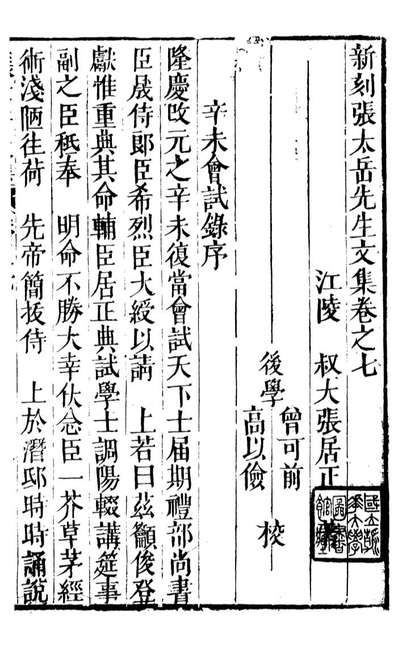 新刻張太岳先生文集卷之七
江陵 叔大張居正
後學
曾可前
高以儉
校
辛未會試錄序
隆慶改元之辛未復當會試天下士届期禮部尚書
臣晟侍郎臣希烈臣大綬以請 上若曰茲籲俊登
獻惟重典其命輔臣居正典試學士調陽輟講筵事
副之臣秪奉 明命不勝大幸伏念臣一芥草茅經
術淺陋往荷 先帝簡拔侍 上於潛邸時時誦說